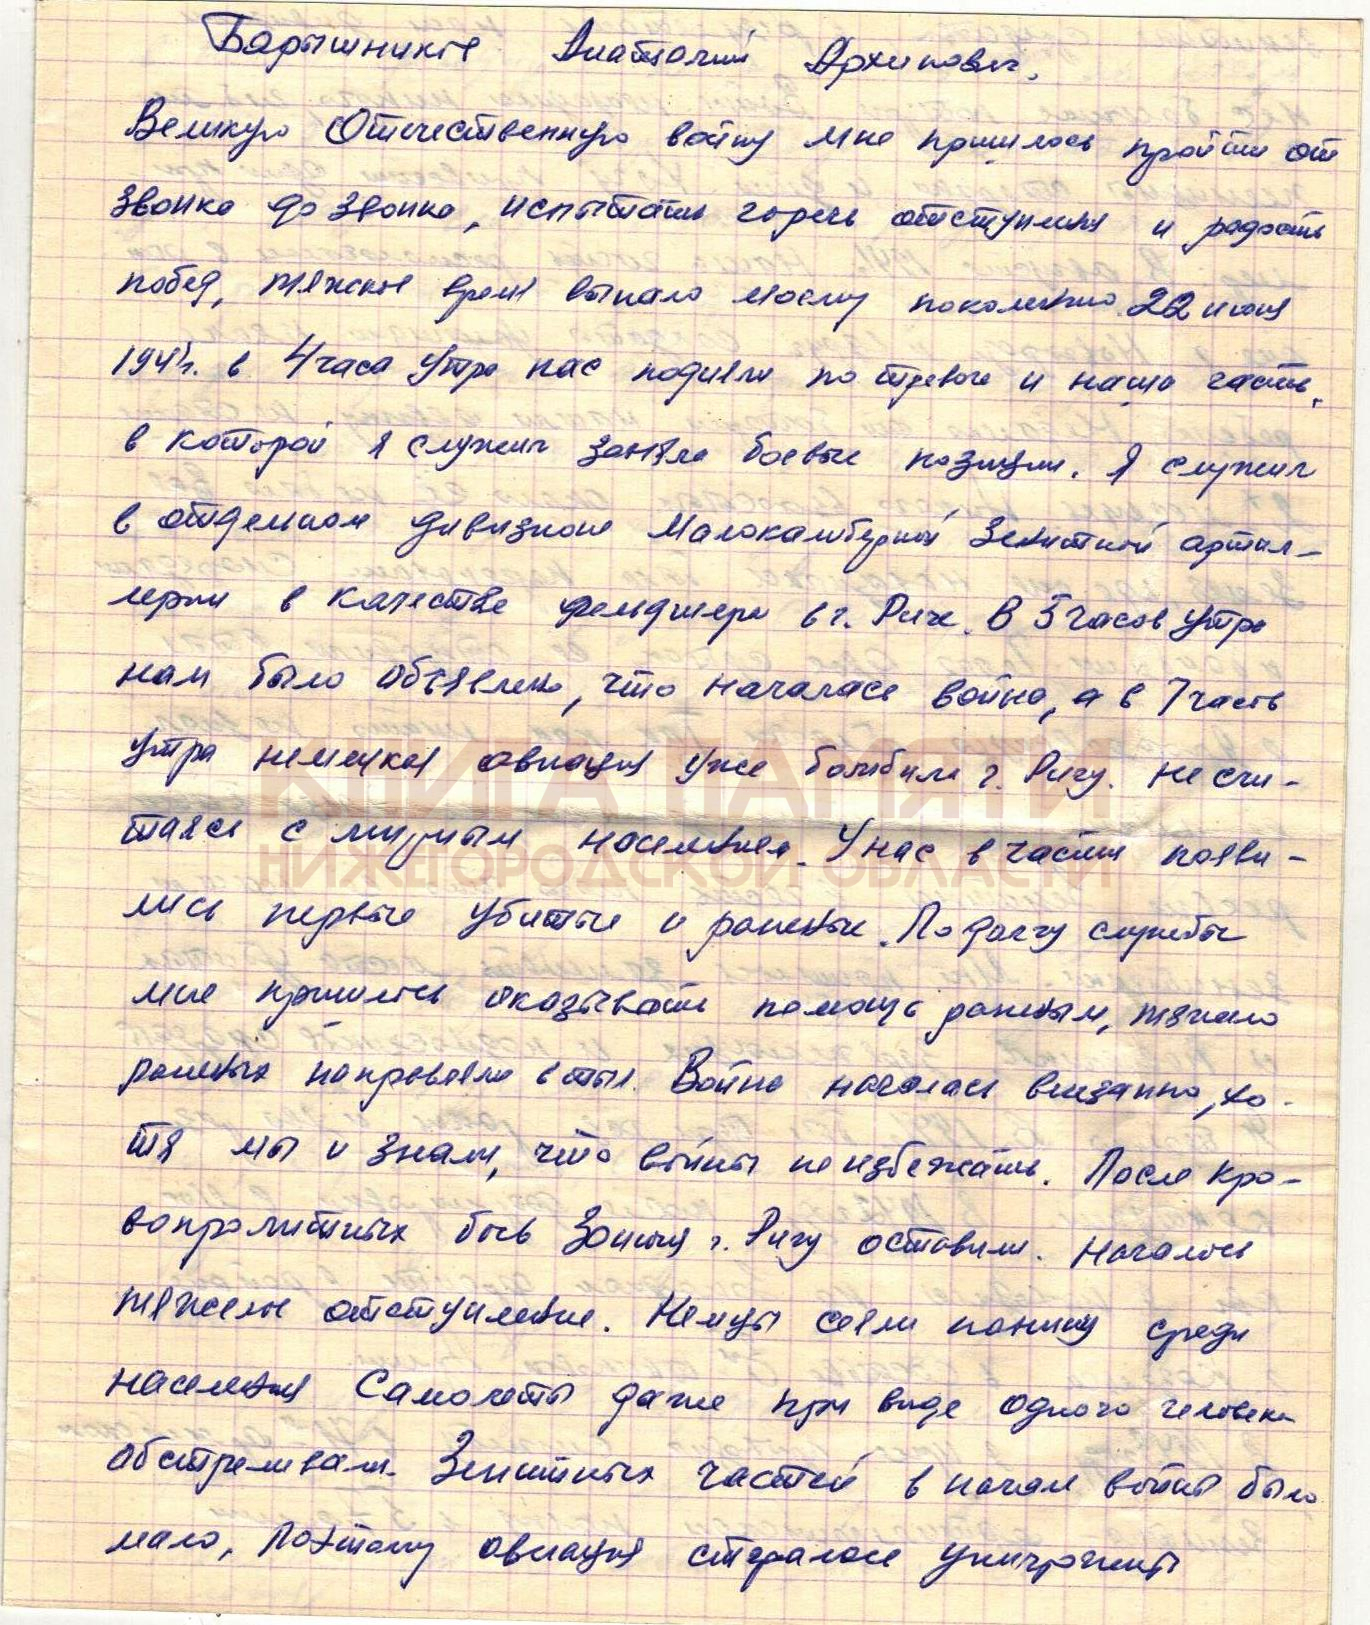 Барышников Анатолий Архипович.
Великую Отечественную войну мне пришлось пройти от
звонка до звонка, испытать горечь отступления и радость
побед, тяжкое время выпало моему поколению. 22 июня
1941г. в 4 часа утра нас подняли по тревоге и наша часть,
в которой я служил заняла боевые позиции. Я служил
в отдельном дивизионе Малокалиберной Зенитной артил-
лерии в качестве фельдшера в г. Риге. В 5 часов утра
нам было объявлено, что началась война, а в 7 часов
утра немецкая авиация уже бомбила г. Ригу. Не счи-
таясь с мирным населением. У нас в части появи-
лись первые убитые и раненые. По долгу службы
мне пришлось оказывать помощь раненым, тяжело
раненых направляли в тыл. Война началась внезапно, хо-
тя мы и знали, что войны не избежать. После кро-
вопролитных боев Зоныя г. Ригу оставили. Началось
тяжелое отступление. Немцы сеяли панику среди
населения Самолеты даже при виде одного человека
обстреливали. Зенитных частей в начале войны было
мало, Поэтому авиация старалась уничтожить
КНИГА ПАМЯТИ
НИЖЕГОРОДСКОЙ ОБЛАСТИ